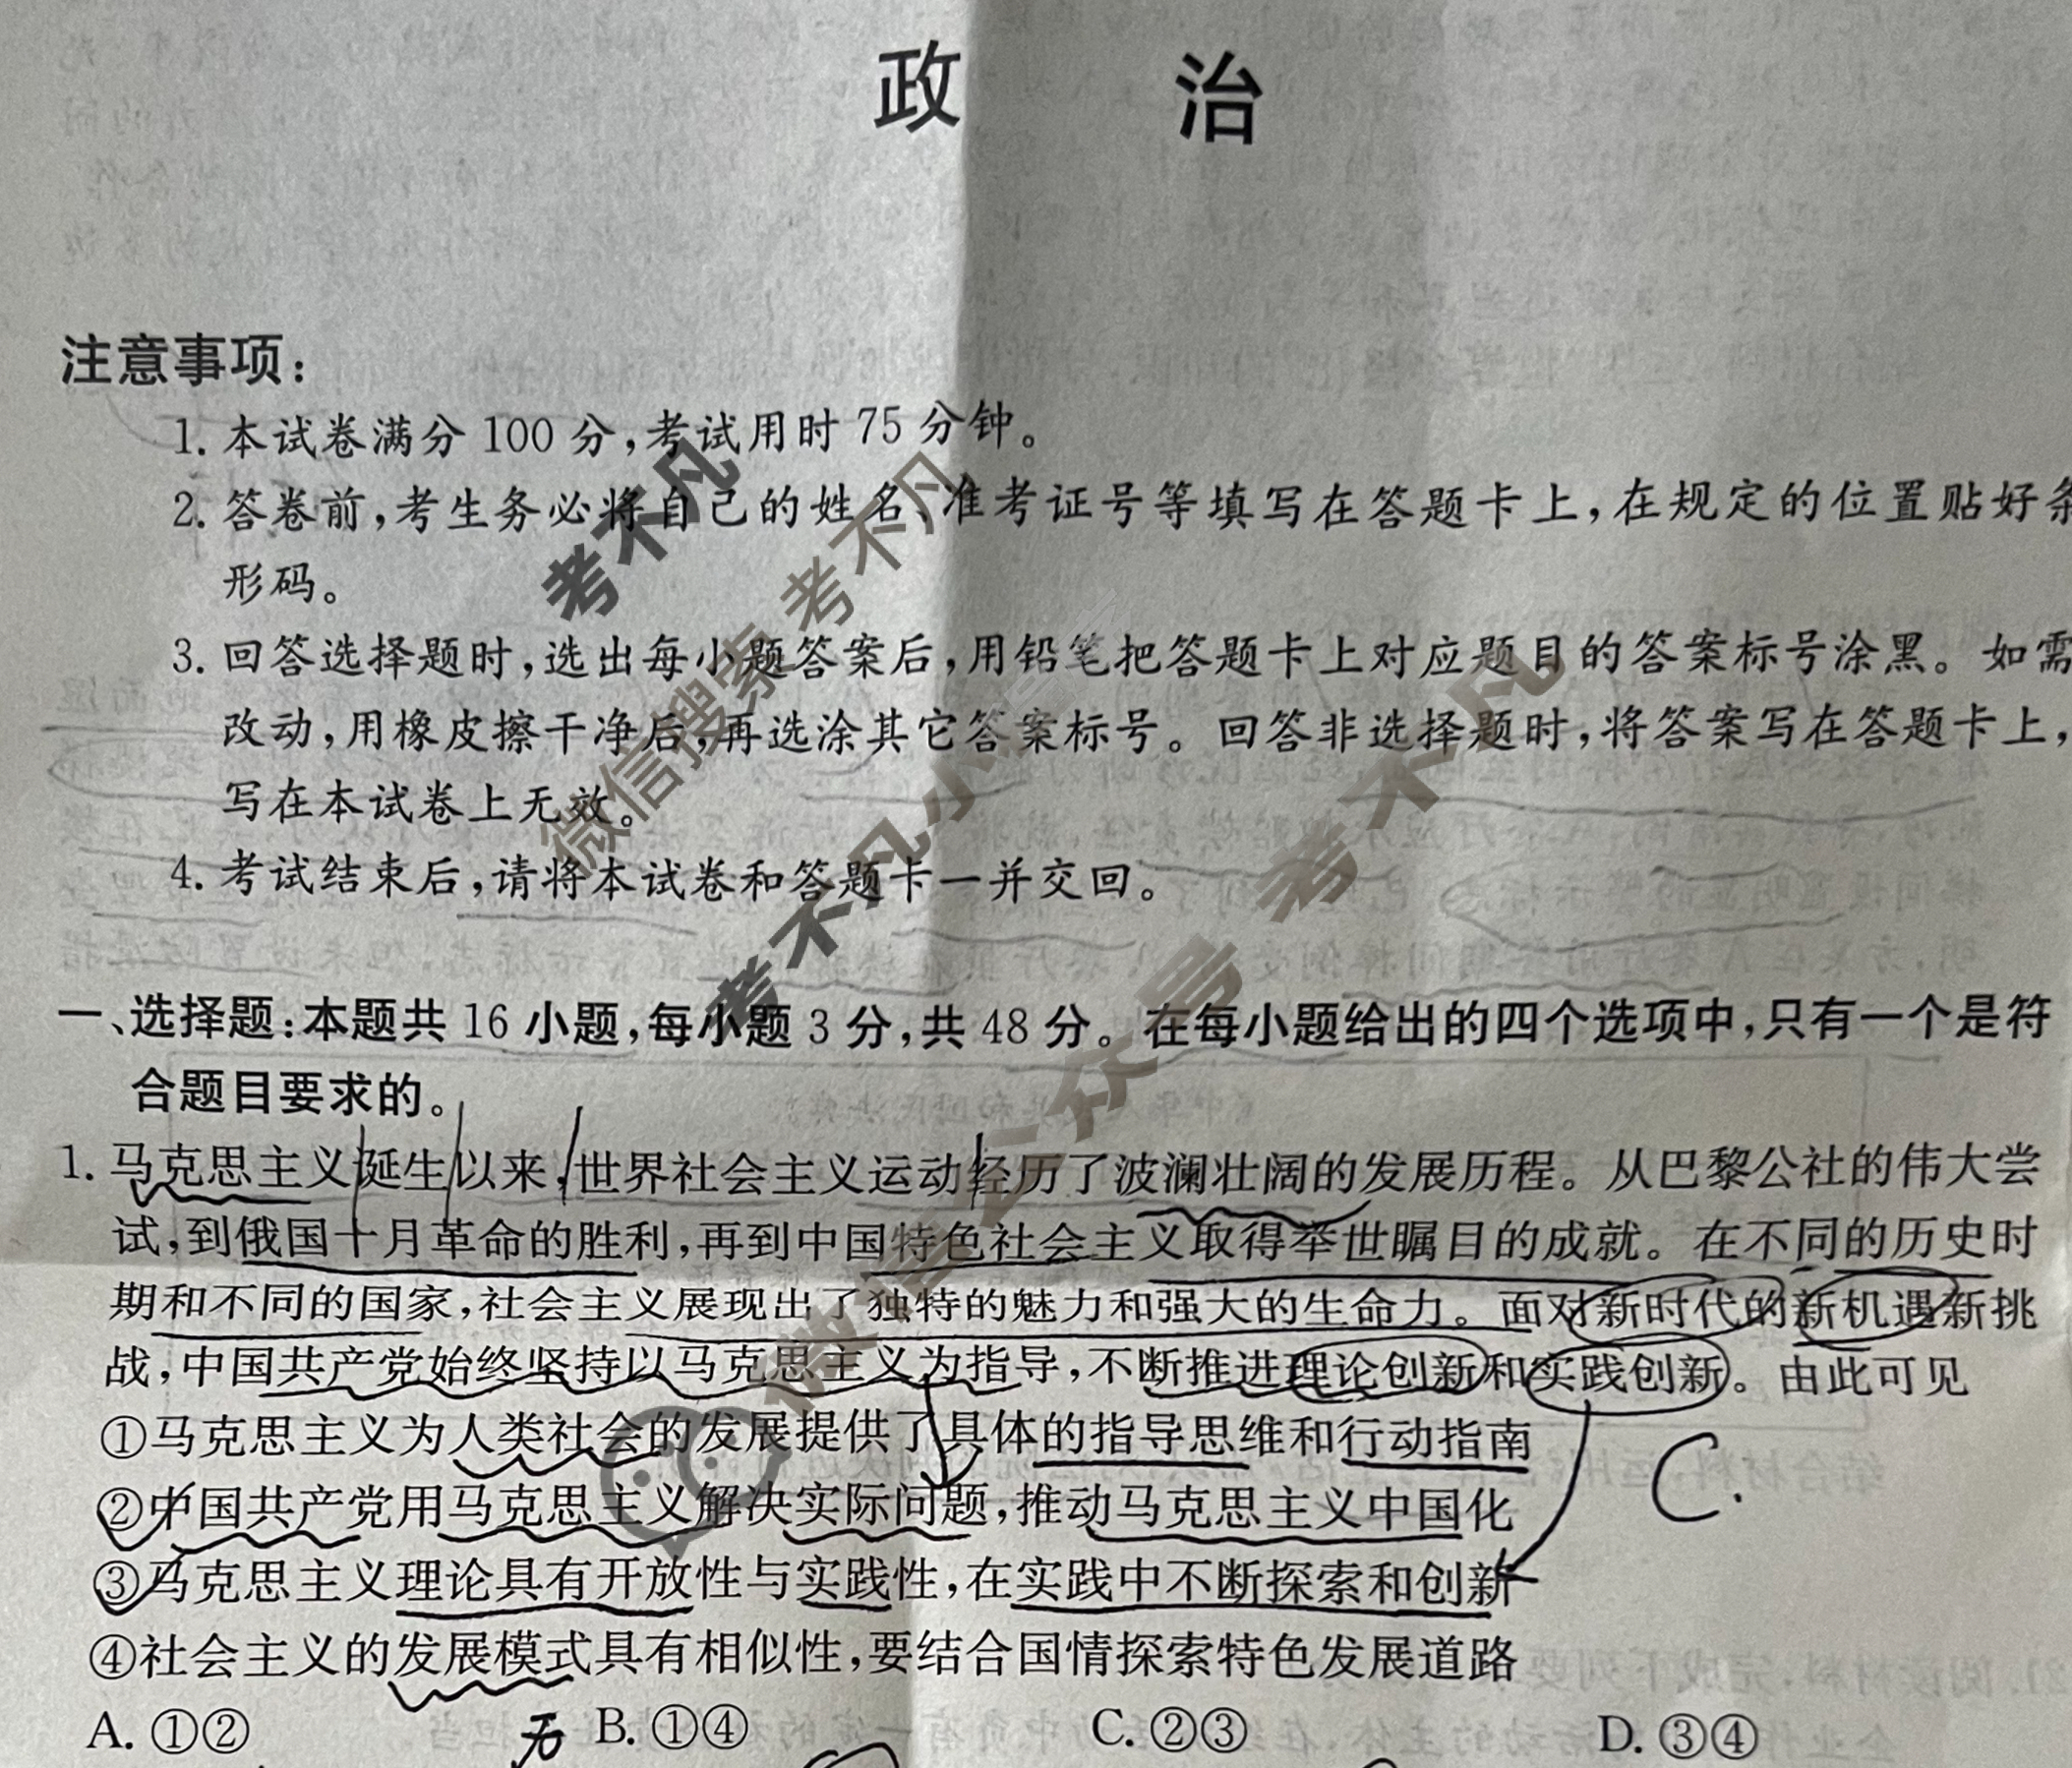 政 治
注意事项：
1. 本试卷满分 100 分，考试用时 75 分钟。
2. 答卷前，考生务必将自己的姓名、准考证号等填写在答题卡上，在规定的位置贴好条
形码。
3. 回答选择题时，选出每小题答案后，用铅笔把答题卡上对应题目的答案标号涂黑。如需
改动，用橡皮擦干净后，再选涂其它答案标号。回答非选择题时，将答案写在答题卡上，
写在本试卷上无效。
4. 考试结束后，请将本试卷和答题卡一并交回。
考不凡
微信搜索 考不凡
考不凡小
微信公众号 考不凡
一、选择题：本题共 16 小题，每小题 3 分，共 48 分。在每小题给出的四个选项中，只有一个是符
合题目要求的。
1. 马克思主义诞生以来，世界社会主义运动经历了波澜壮阔的发展历程。从巴黎公社的伟大尝
试，到俄国十月革命的胜利，再到中国特色社会主义取得举世瞩目的成就。在不同的历史时
期和不同的国家，社会主义展现出了独特的魅力和强大的生命力。面对新时代的新机遇新挑
战，中国共产党始终坚持以马克思主义为指导，不断推进理论创新和实践创新。由此可见
①马克思主义为人类社会的发展提供了具体的指导思维和行动指南
C.
②中国共产党用马克思主义解决实际问题，推动马克思主义中国化
③马克思主义理论具有开放性与实践性，在实践中不断探索和创新
④社会主义的发展模式具有相似性，要结合国情探索特色发展道路
A. ①② B. ①④ C. ②③ D. ③④